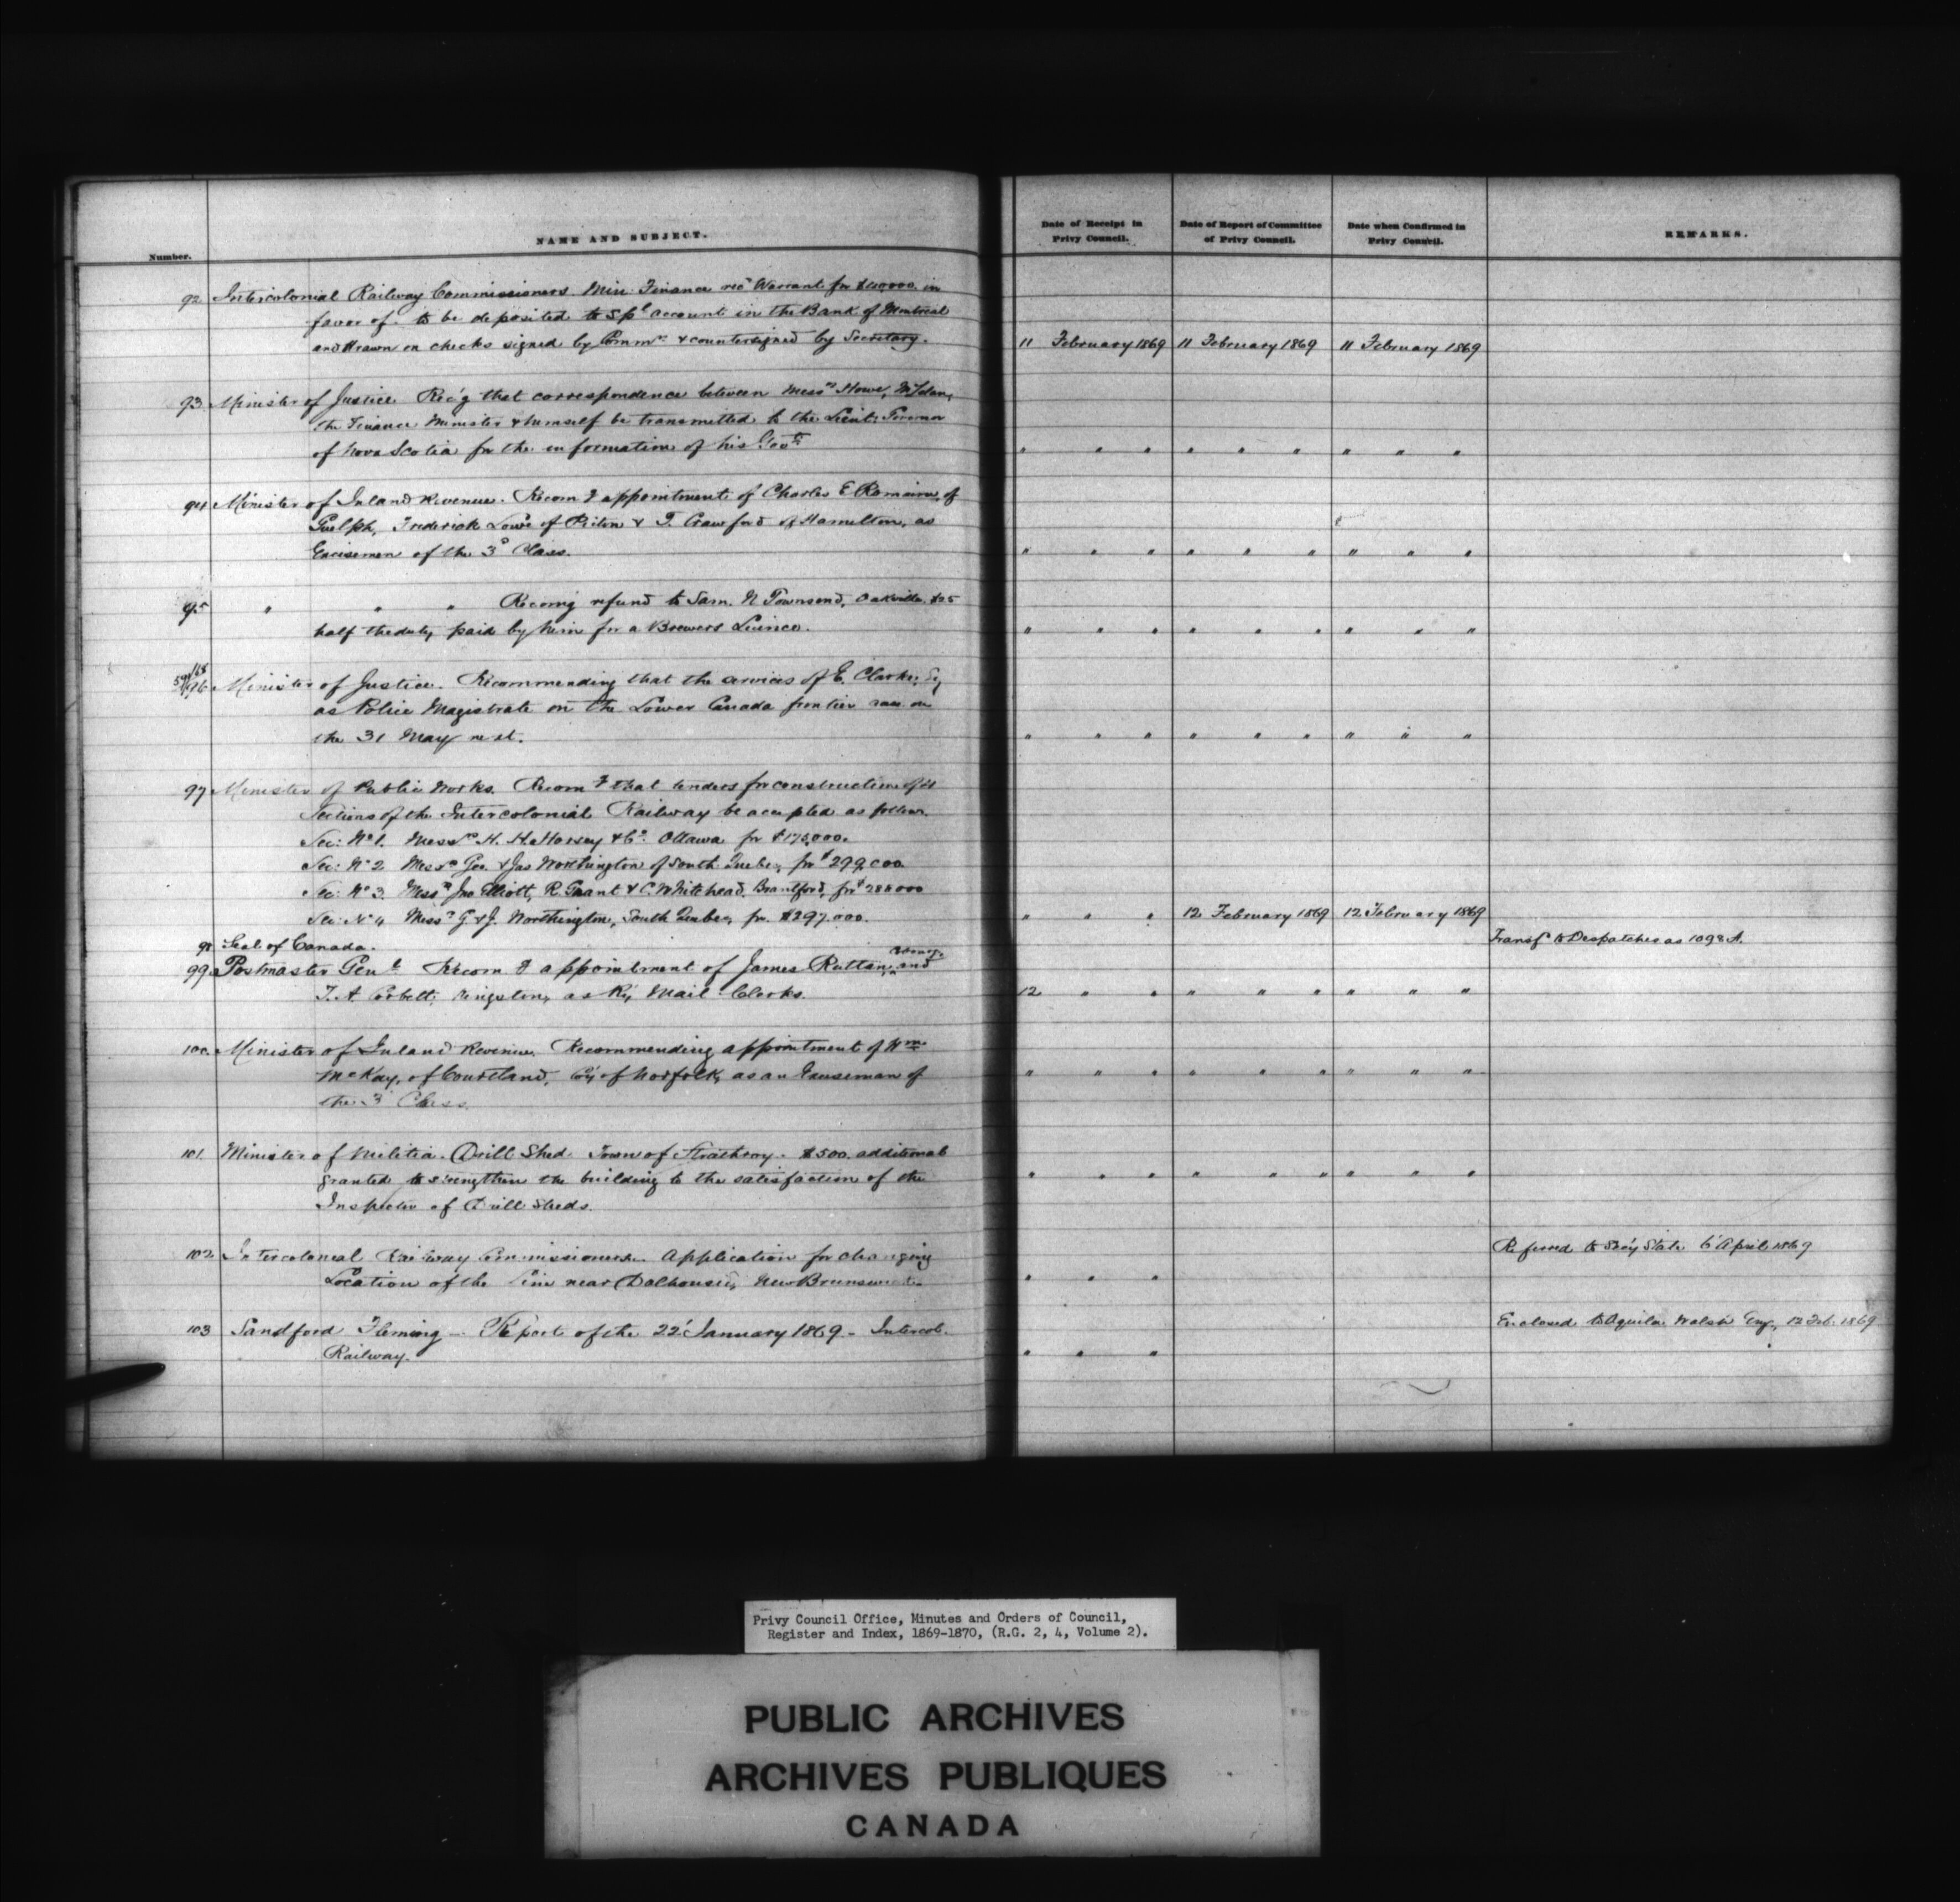 Number. NAME AND SUBJECT. Date of Receipt in Privy Council. Date of Report of Committee of Privy Council. Date when Confirmed in Privy Council. REMARKS.
92 Intercolonial Railway Commissioners. Min: Finance rec^g Warrant for in
favor of. to be deposited to Sp^l account in the Bank of Montreal
and drawn on checks signed by Comm^rs & countersigned by Secretary. 11 February 1869 11 February 1869 11 February 1869
93 Minister of Justice Rec'g that correspondence between Mess^rs Howe, McLelan,
the Finance Minister & himself be transmitted to the Lieut: Governor
of Nova Scotia for the information of his Gov^t " " " " " " " " "
94 Minister of Inland Revenue. Recom^g appointment of Charles E Romaine, of
Guelph, Frederick Lowe of Picton & T. Crawford of Hamilton, as
Excisemen of the 3^d Class. " " " " " " " " "
95 " " " Recom'g refund to Sam. N Townsend, Oakville, $25
half the duty paid by him for a Brewers License. " " " " " " " " "
96 Minister of Justice. Recommending that the services of E. Clarke,
as Police Magistrate on the Lower Canada frontier cease on
the 31 May next. " " " " " " " " "
97 Minister of Public Works. Recom^g that tenders for construction of
Sections of the Intercolonial Railway be accepted as follows.
Sec: N^o 1. Mess^rs H. H. Horsey & C^o. Ottawa for
Sec: N^o 2 Mess^rs Geo & Jas Worthington of South Quebec, for $299,000
Sec: N^o 3. Mess^rs Jno Elliott, R. Grant & C. Whitehead. Brantford, for $288000
Sec: N^o 4 Mess^rs G & J. Worthington, South Quebec, for $297.000. " " " 12 February 1869 12 February 1869
98 Seal of Canada. Transf^d to Despatches as 1098 A.
99 Postmaster Gen^l Recom^g appointment of James Ruttan, Cobourg, and
T. A Corbett, Kingston, as Ry Mail Clerks. 12 " " " " " " " "
100. Minister of Inland Revenue. Recommending appointment of W^m
McKay, of Courtland, Co'y of Norfolk, as an Exciseman of " " " " " " " " "
the 3 Class.
101. Minister of Militia. Drill Shed. Town of Strathroy. $500. additional
granted to strengthen the building to the satisfaction of the " " " " " " " " "
Inspector of Drill Sheds.
102 Intercolonial Railway Commissioners. Application for changing Referred to Sec'y State 6 April 1869
Location of the Line near Dalhousie, New Brunswick. " " "
103 Sandford Fleming - Report of the 22' January 1869 - Intercol. Enclosed to Aquila Walsh Esq., 12 Feb. 1869
Railway. " " "
Privy Council Office, Minutes and Orders of Council,
Register and Index, 1869-1870, (R.G. 2, 4, Volume 2).
PUBLIC ARCHIVES
ARCHIVES PUBLIQUES
CANADA